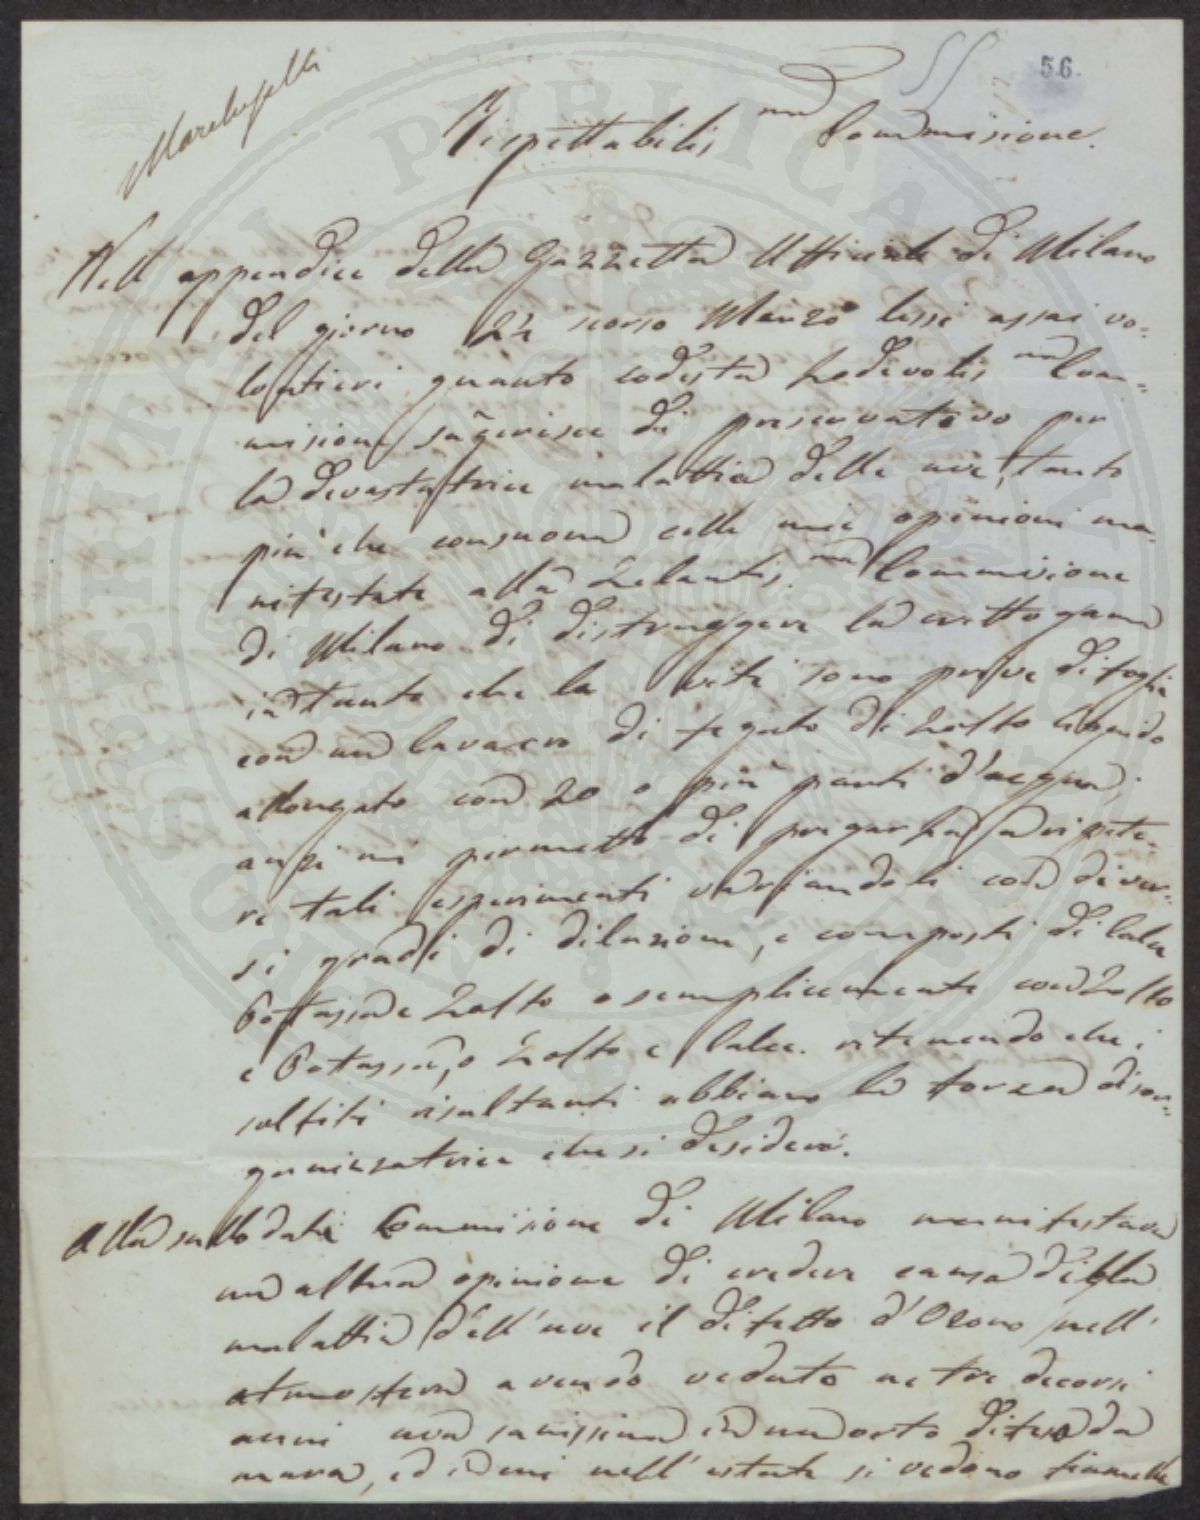 56.
Rispettabiliss.ma Commissione.
Nell appendice della Gazzetta Uffiziale di Milano
del giorno 24 scorso Marzo lessi assai vo-
lontieri quanto codesta Lodevoliss.ma Com-
misione sugerisce di preservativo per
la devastatrice malattia delle uve, tanto
più che consuona colle mie opinioni ma-
nifestate alla Zelantiss.ma Commissione
di Milano di distruggere la crittogama
intanto che le viti sono prive di foglie
con un lavacro di fegato di Zolfo liquido
allongato con 20 o più parti d'acqua;
anzi mi permetto di pregarla a ripete-
re tali esperimenti variandoli con diver-
si gradi di diluzione, e composti di Calce
Potassa e Zolfo o semplicemente con Zolfo
e Potassa, o Zolfo e Calce. ritenendo che i
solfiti risultanti abbiano la forza disor-
ganizzatrice che si desidera.
Alla sullodata Commissione di Milano manifestava
un altra opinione di credere causa della
malattia dell'uve il difetto d'Ozono nell'
atmosfera avendo veduto ne tre decorsi
anni uva sanissima in un orto difeso da
mura, ed in cui nell'estate si vedono fiammelle